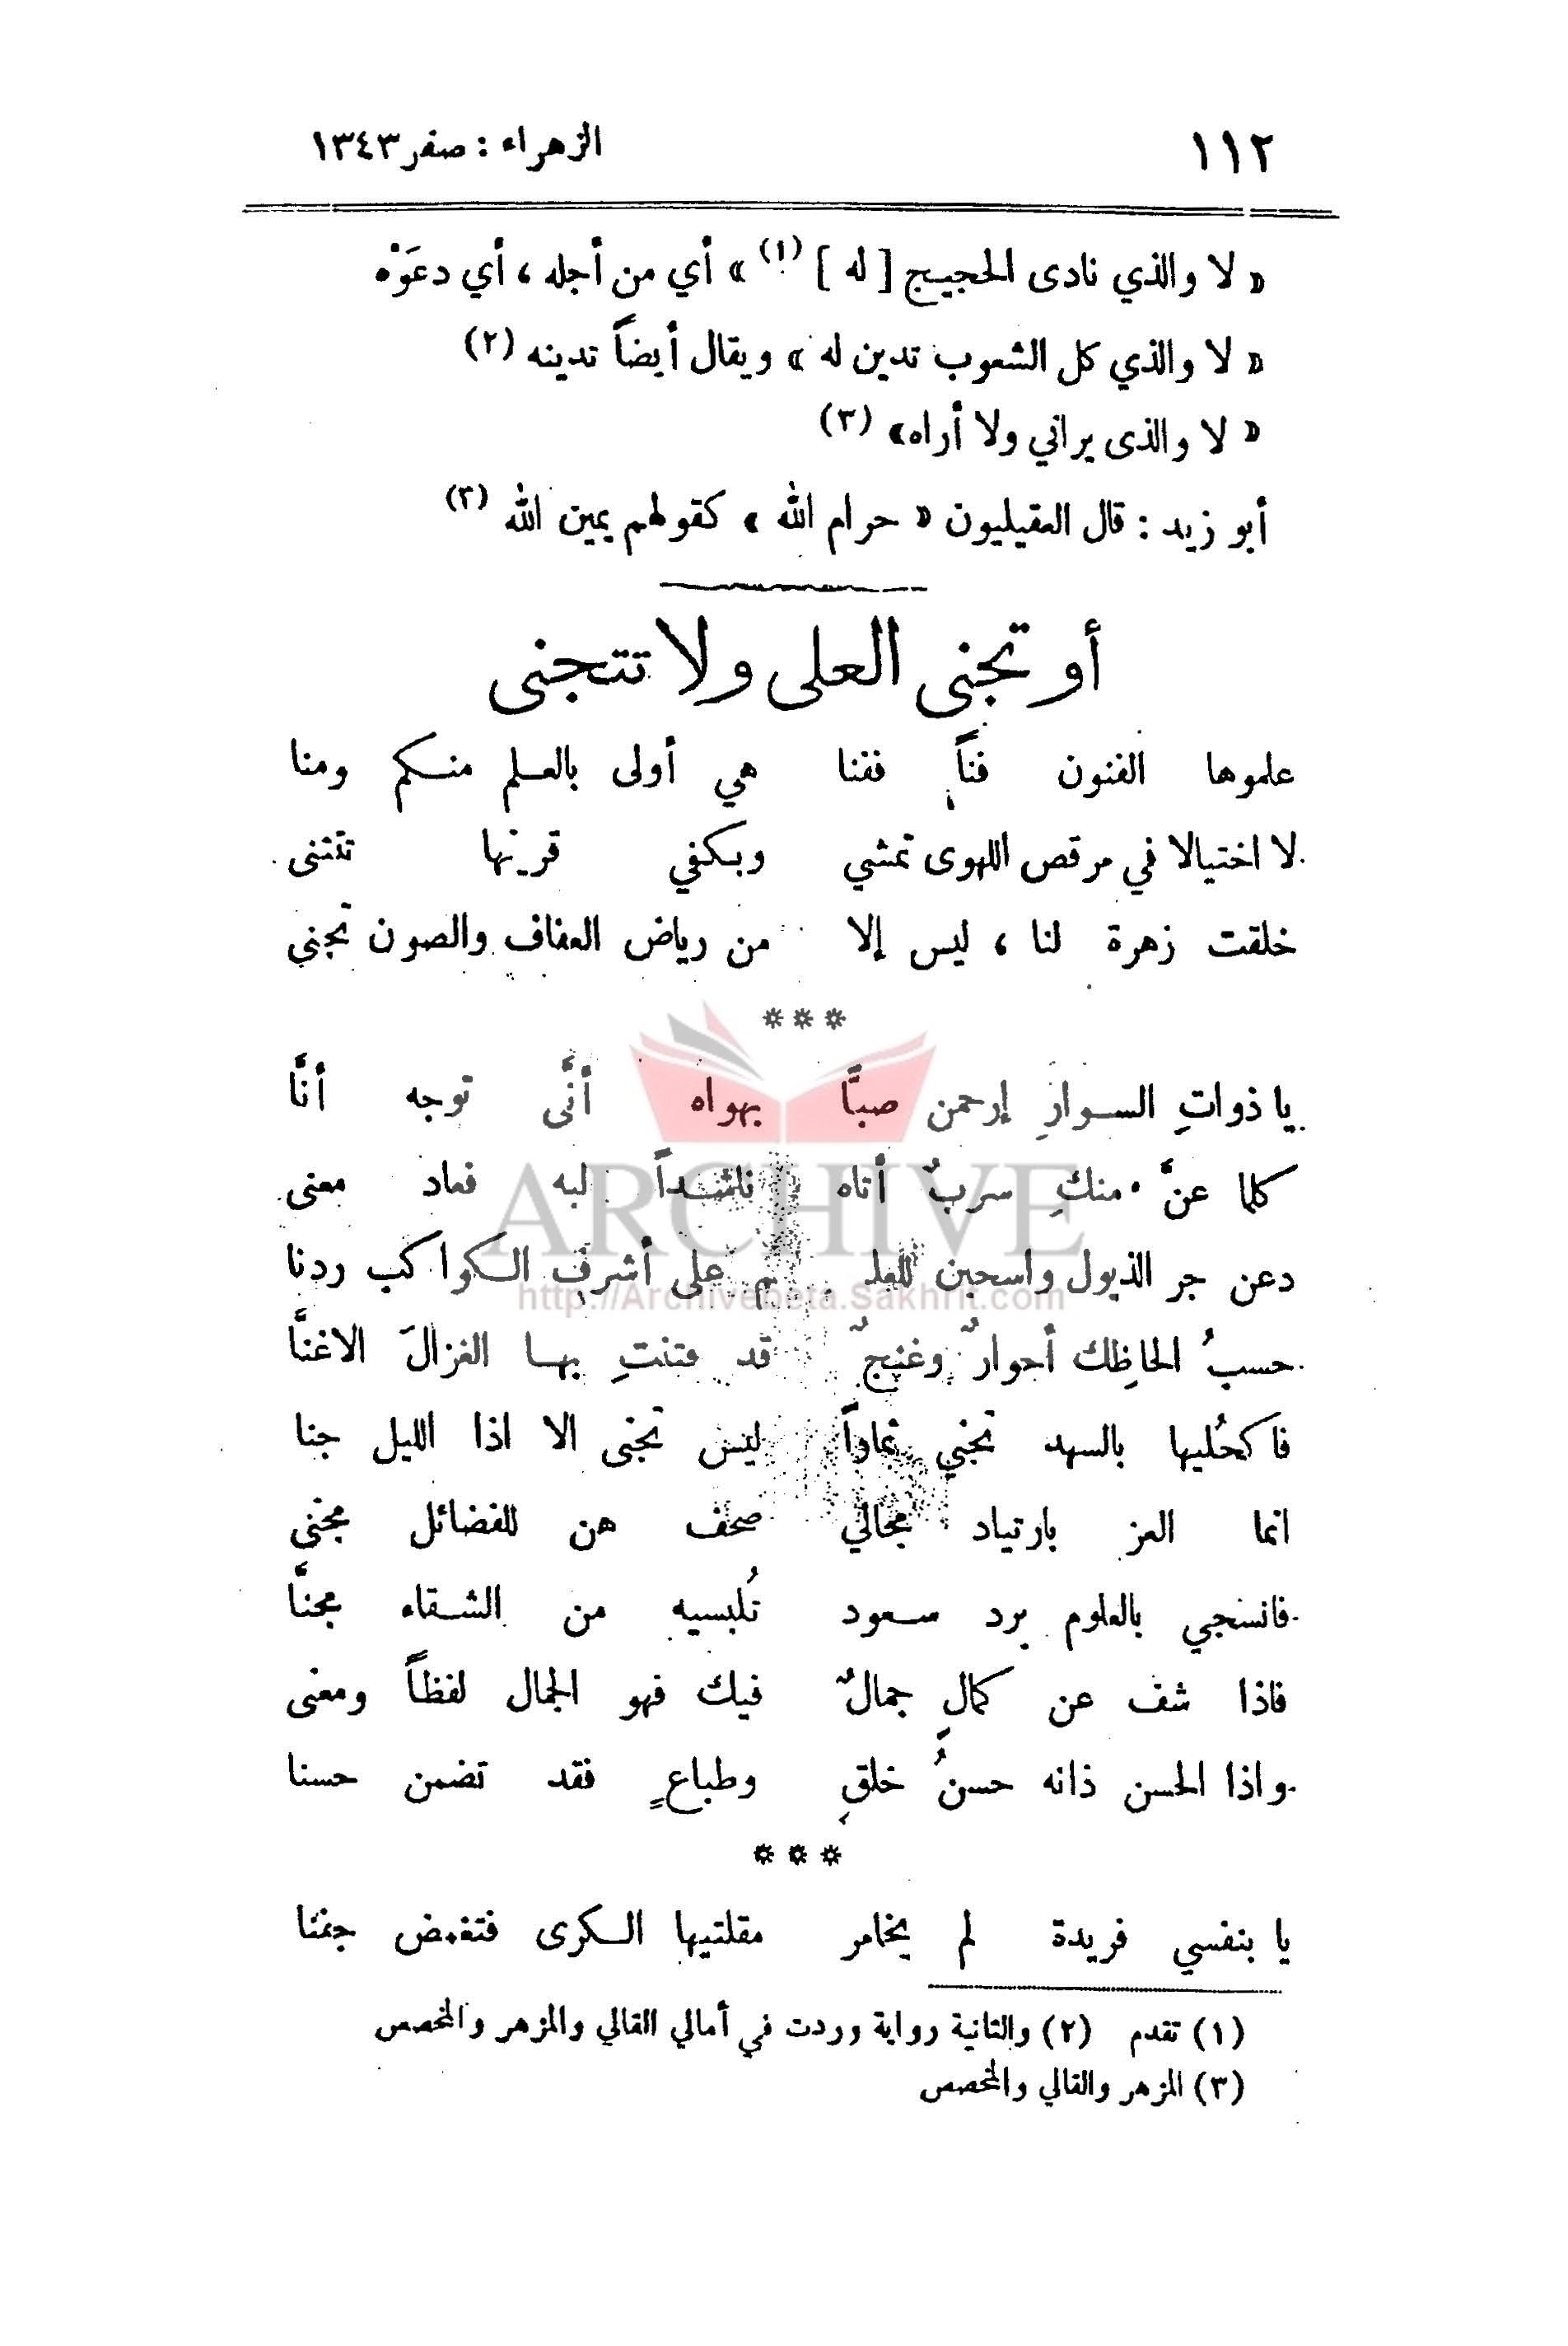 ١١٢ الزهراء : صفر ١٣٤٣
« لا والذي نادى الحجيج [ له ] (١) » أي من أجله ، أي دعَوْه
« لا والذي كل الشعوب تدين له » ويقال أيضاً تدينه (٢)
« لا والذى يراني ولا أراه» (٣)
أبو زيد : قال العقيليون « حرام الله » كقولهم يمين الله (٣)
أو تجنى العلى ولا تتجنى
علموها الفنون فناً ففنا هي أولى بالعلم منكم ومنا
لا اختيالا في مرقص اللهوى تمشي وبكفي قرينها تتثنى
خلقت زهرة لنا ، ليس إلا من رياض العفاف والصون تجنى
***
يا ذواتِ السوارِ إرحمن صبًّا بهواه أنَّى توجه أنَّا
كلما عنَّ منكِ سربٌ أتاه ناشداً لبه فعاد معنى
دعن جر الذيول واسحبن للعلـ ـم على أشرفِ الكواكب ردنا
حسبُ الحاظِك أحوارٌ وغنجٌ قد فتنتِ بها الغزالَ الاغنَّا
فاكحُليها بالسهد تجني ثماراً ليس تجنى الا اذا الليل جنا
انما العز بارتياد مجالي صحف هن للفضائل مجنى
فانسجي بالعلوم برد سعود تُلبسيه من الشقاء مجنَّا
فاذا شف عن كمالٍ جمالٌ فيك فهو الجمال لفظاً ومعنى
واذا الحسن ذانه حسنُ خلقٍ وطباعٍ فقد تضمن حسنا
***
يا بنفسي فريدة لم يخامر مقلتيها الكرى فتغمض جفنا
(١) تقدم (٢) والثانية رواية وردت في أمالي القالي والمزهر والمخصص
(٣) المزهر والقالي والمخصص
ARCHIVE
http://Archivebeta.Sakhrit.com